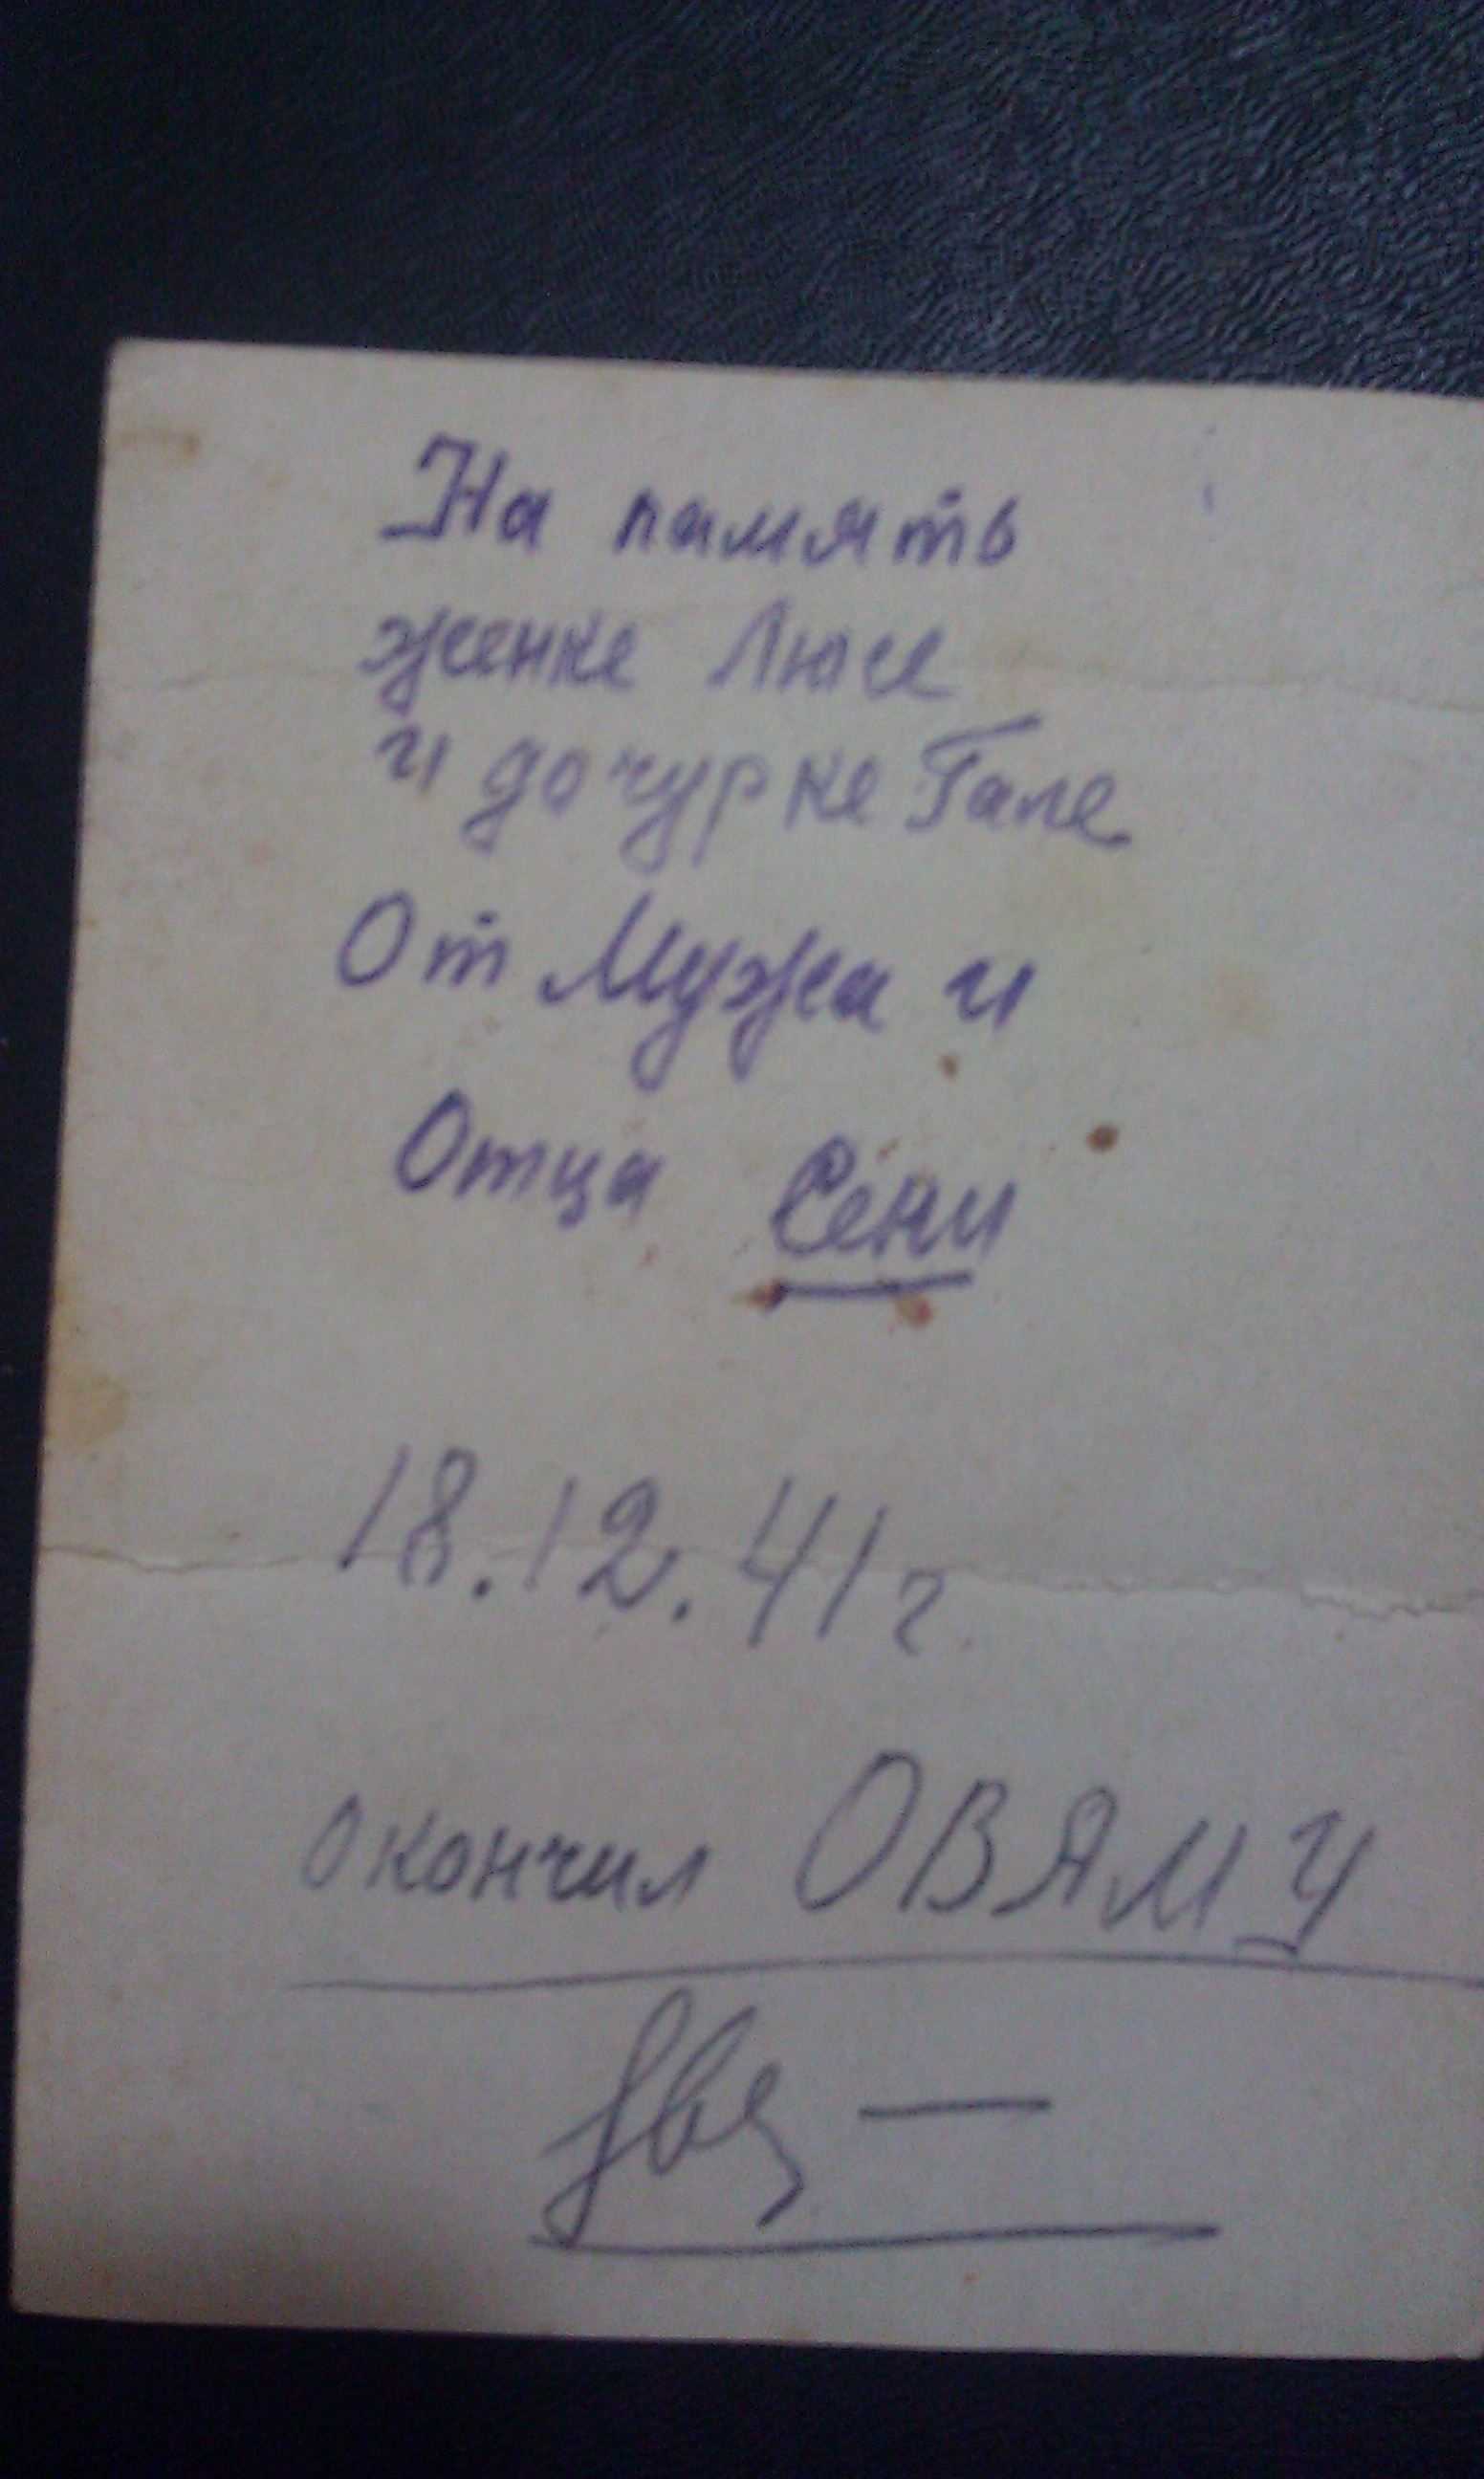 На память
женке Люсе
и дочурке Гале
От Мужа и
Отца Сени
18.12.41г.
Окончил ОВЯМУ